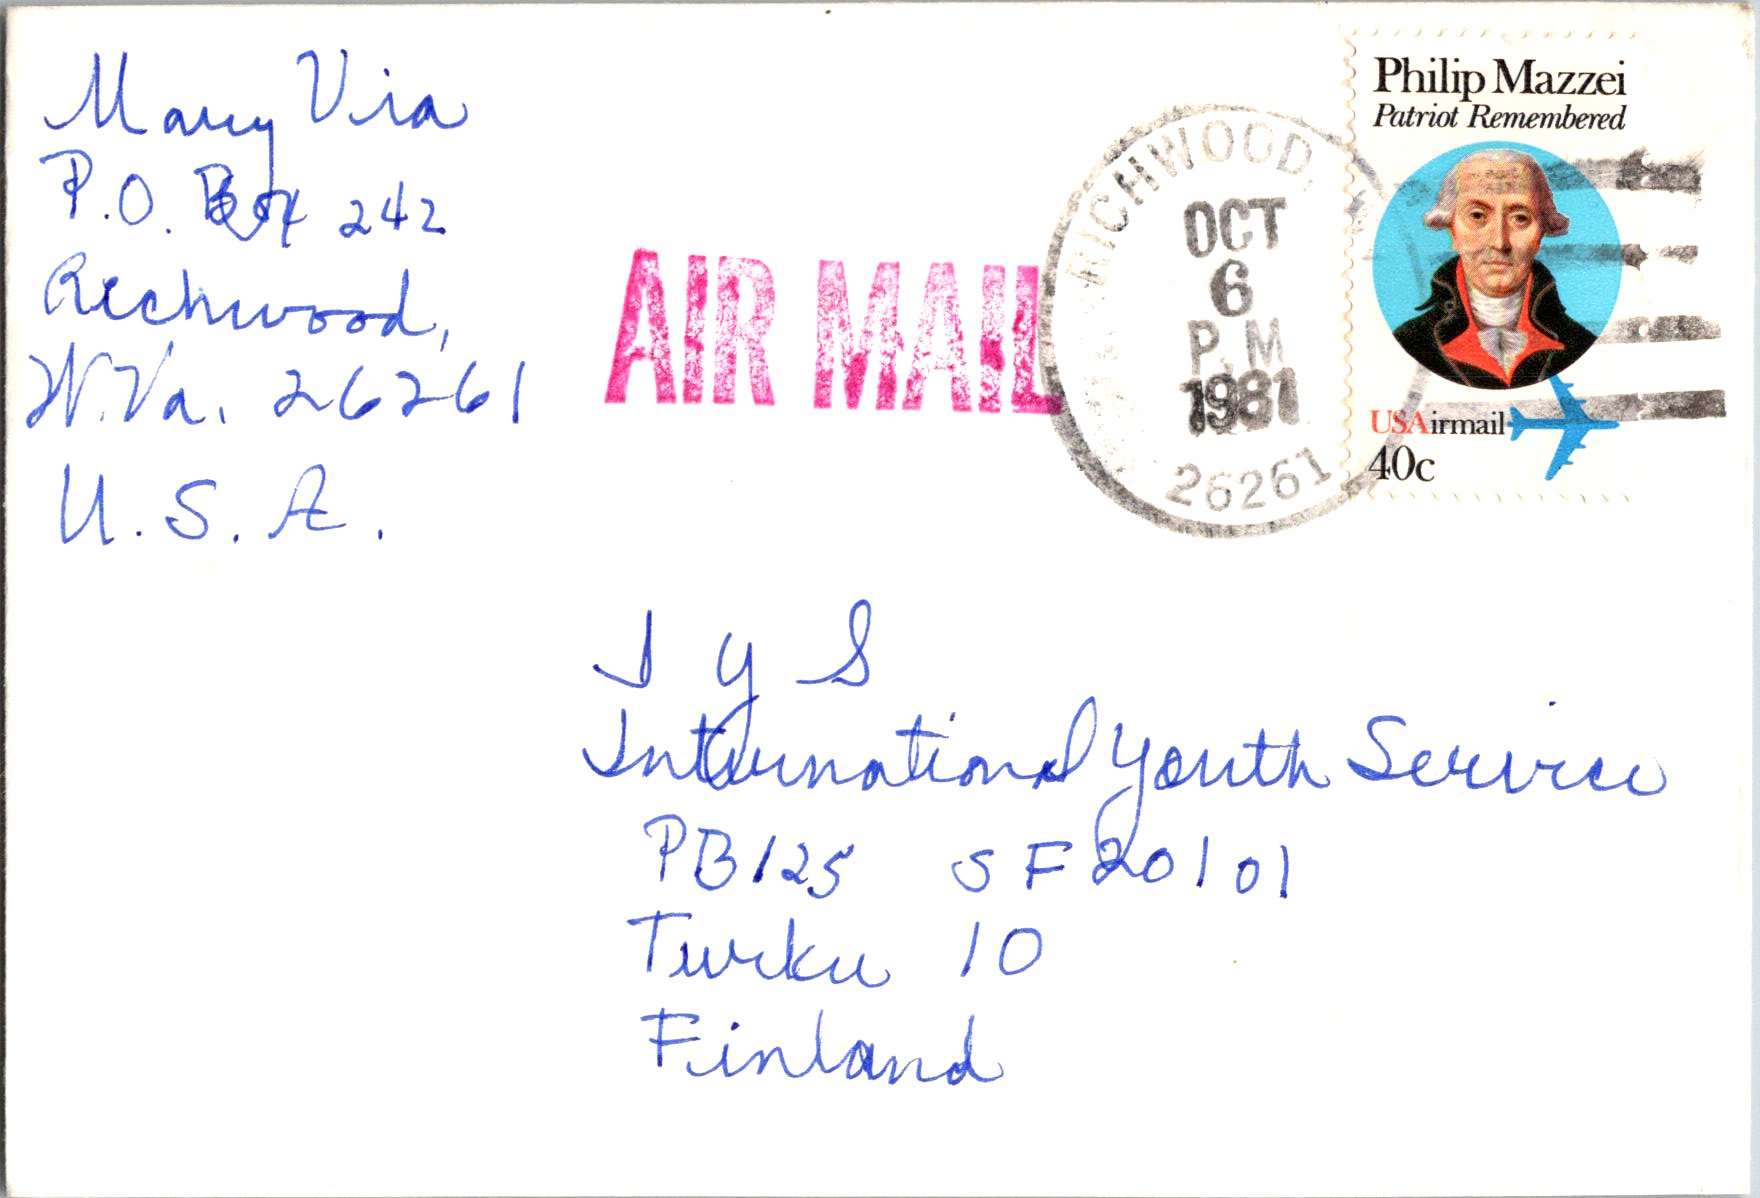 Mary Via
P.O. Box 242
Richwood,
W.Va. 26261
U.S.A.
AIR MAIL
RICHWOOD,
OCT
6
P.M
1981
26261
Philip Mazzei
Patriot Remembered
USAirmail
40c
I Y S
International Youth Service
PB125 SF20101
Turku 10
Finland